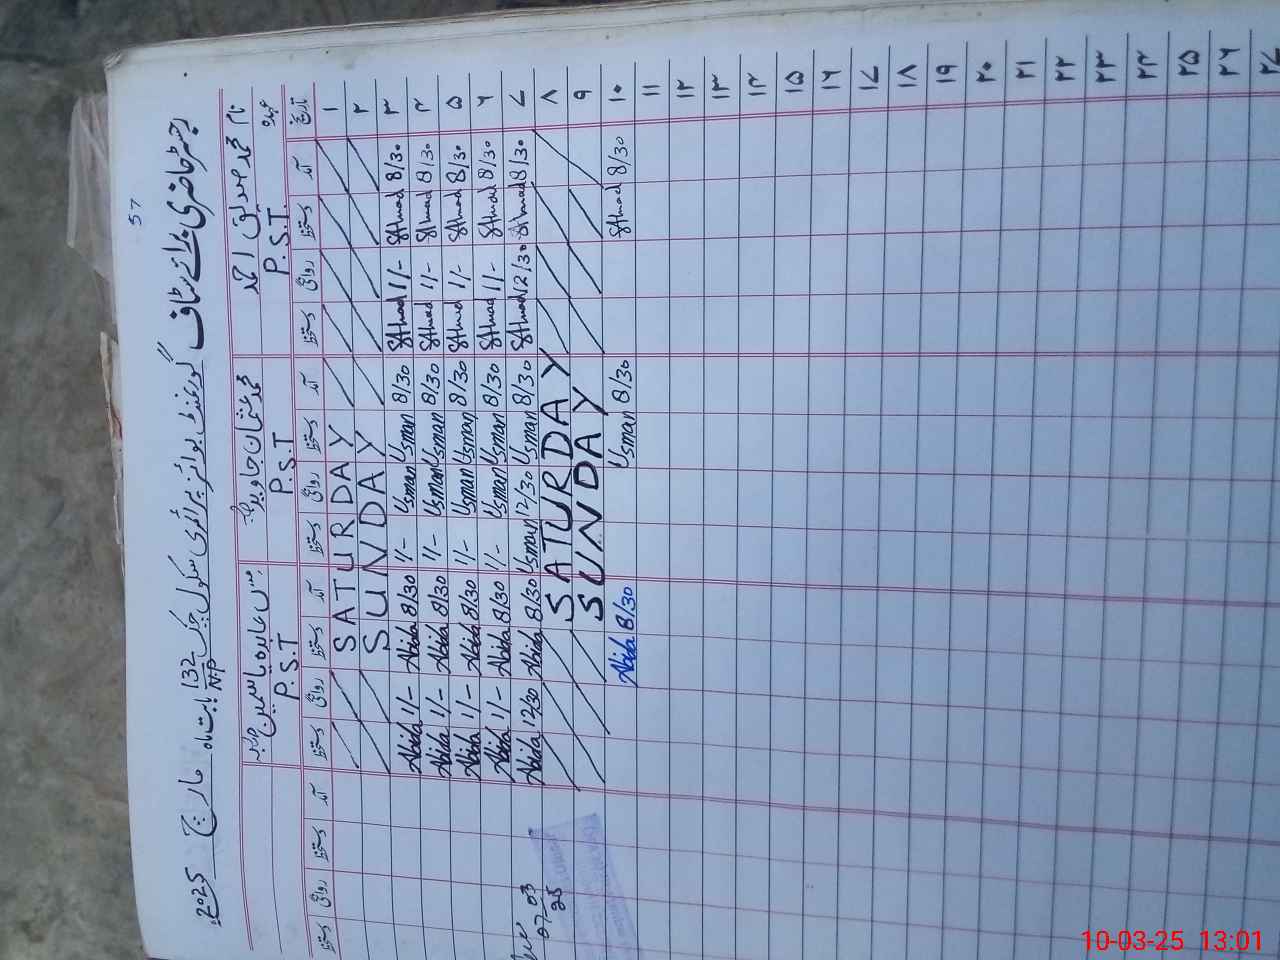 57
رجسٹر حاضری برائے سٹاف گورنمنٹ بوائز پرائمری سکول چک 132 N.P بابت ماہ مارچ 2025ء
نام محمد صدیق احمد محمد عثمان جاوید مس عابدہ یاسمین
عہدہ P.S.T P.S.T P.S.T
تاریخ آمد دستخط روانگی دستخط آمد دستخط روانگی دستخط آمد دستخط روانگی دستخط آمد دستخط روانگی دستخط
۱ SATURDAY
۲ SUNDAY
۳ 8/30 SAhmad 1/- SAhmad 8/30 Usman Usman 1/- 8/30 Abida 1/- Abida
۴ 8/30 SAhmad 1/- SAhmad 8/30 Usman Usman 1/- 8/30 Abida 1/- Abida
۵ 8/30 SAhmad 1/- SAhmad 8/30 Usman Usman 1/- 8/30 Abida 1/- Abida
۶ 8/30 SAhmad 1/- SAhmad 8/30 Usman Usman 1/- 8/30 Abida 1/- Abida
۷ 8/30 SAhmad 12/30 SAhmad 8/30 Usman 12/30 Usman 8/30 Abida 12/30 Abida
۸ SATURDAY
۹ SUNDAY
۱۰ 8/30 SAhmad 8/30 Usman 8/30 Abida
۱۱
۱۲
۱۳
۱۴
۱۵
۱۶
۱۷
۱۸
۱۹
۲۰
۲۱
۲۲
۲۳
۲۴
۲۵
۲۶
۲۷
07-03
25
10-03-25 13:01